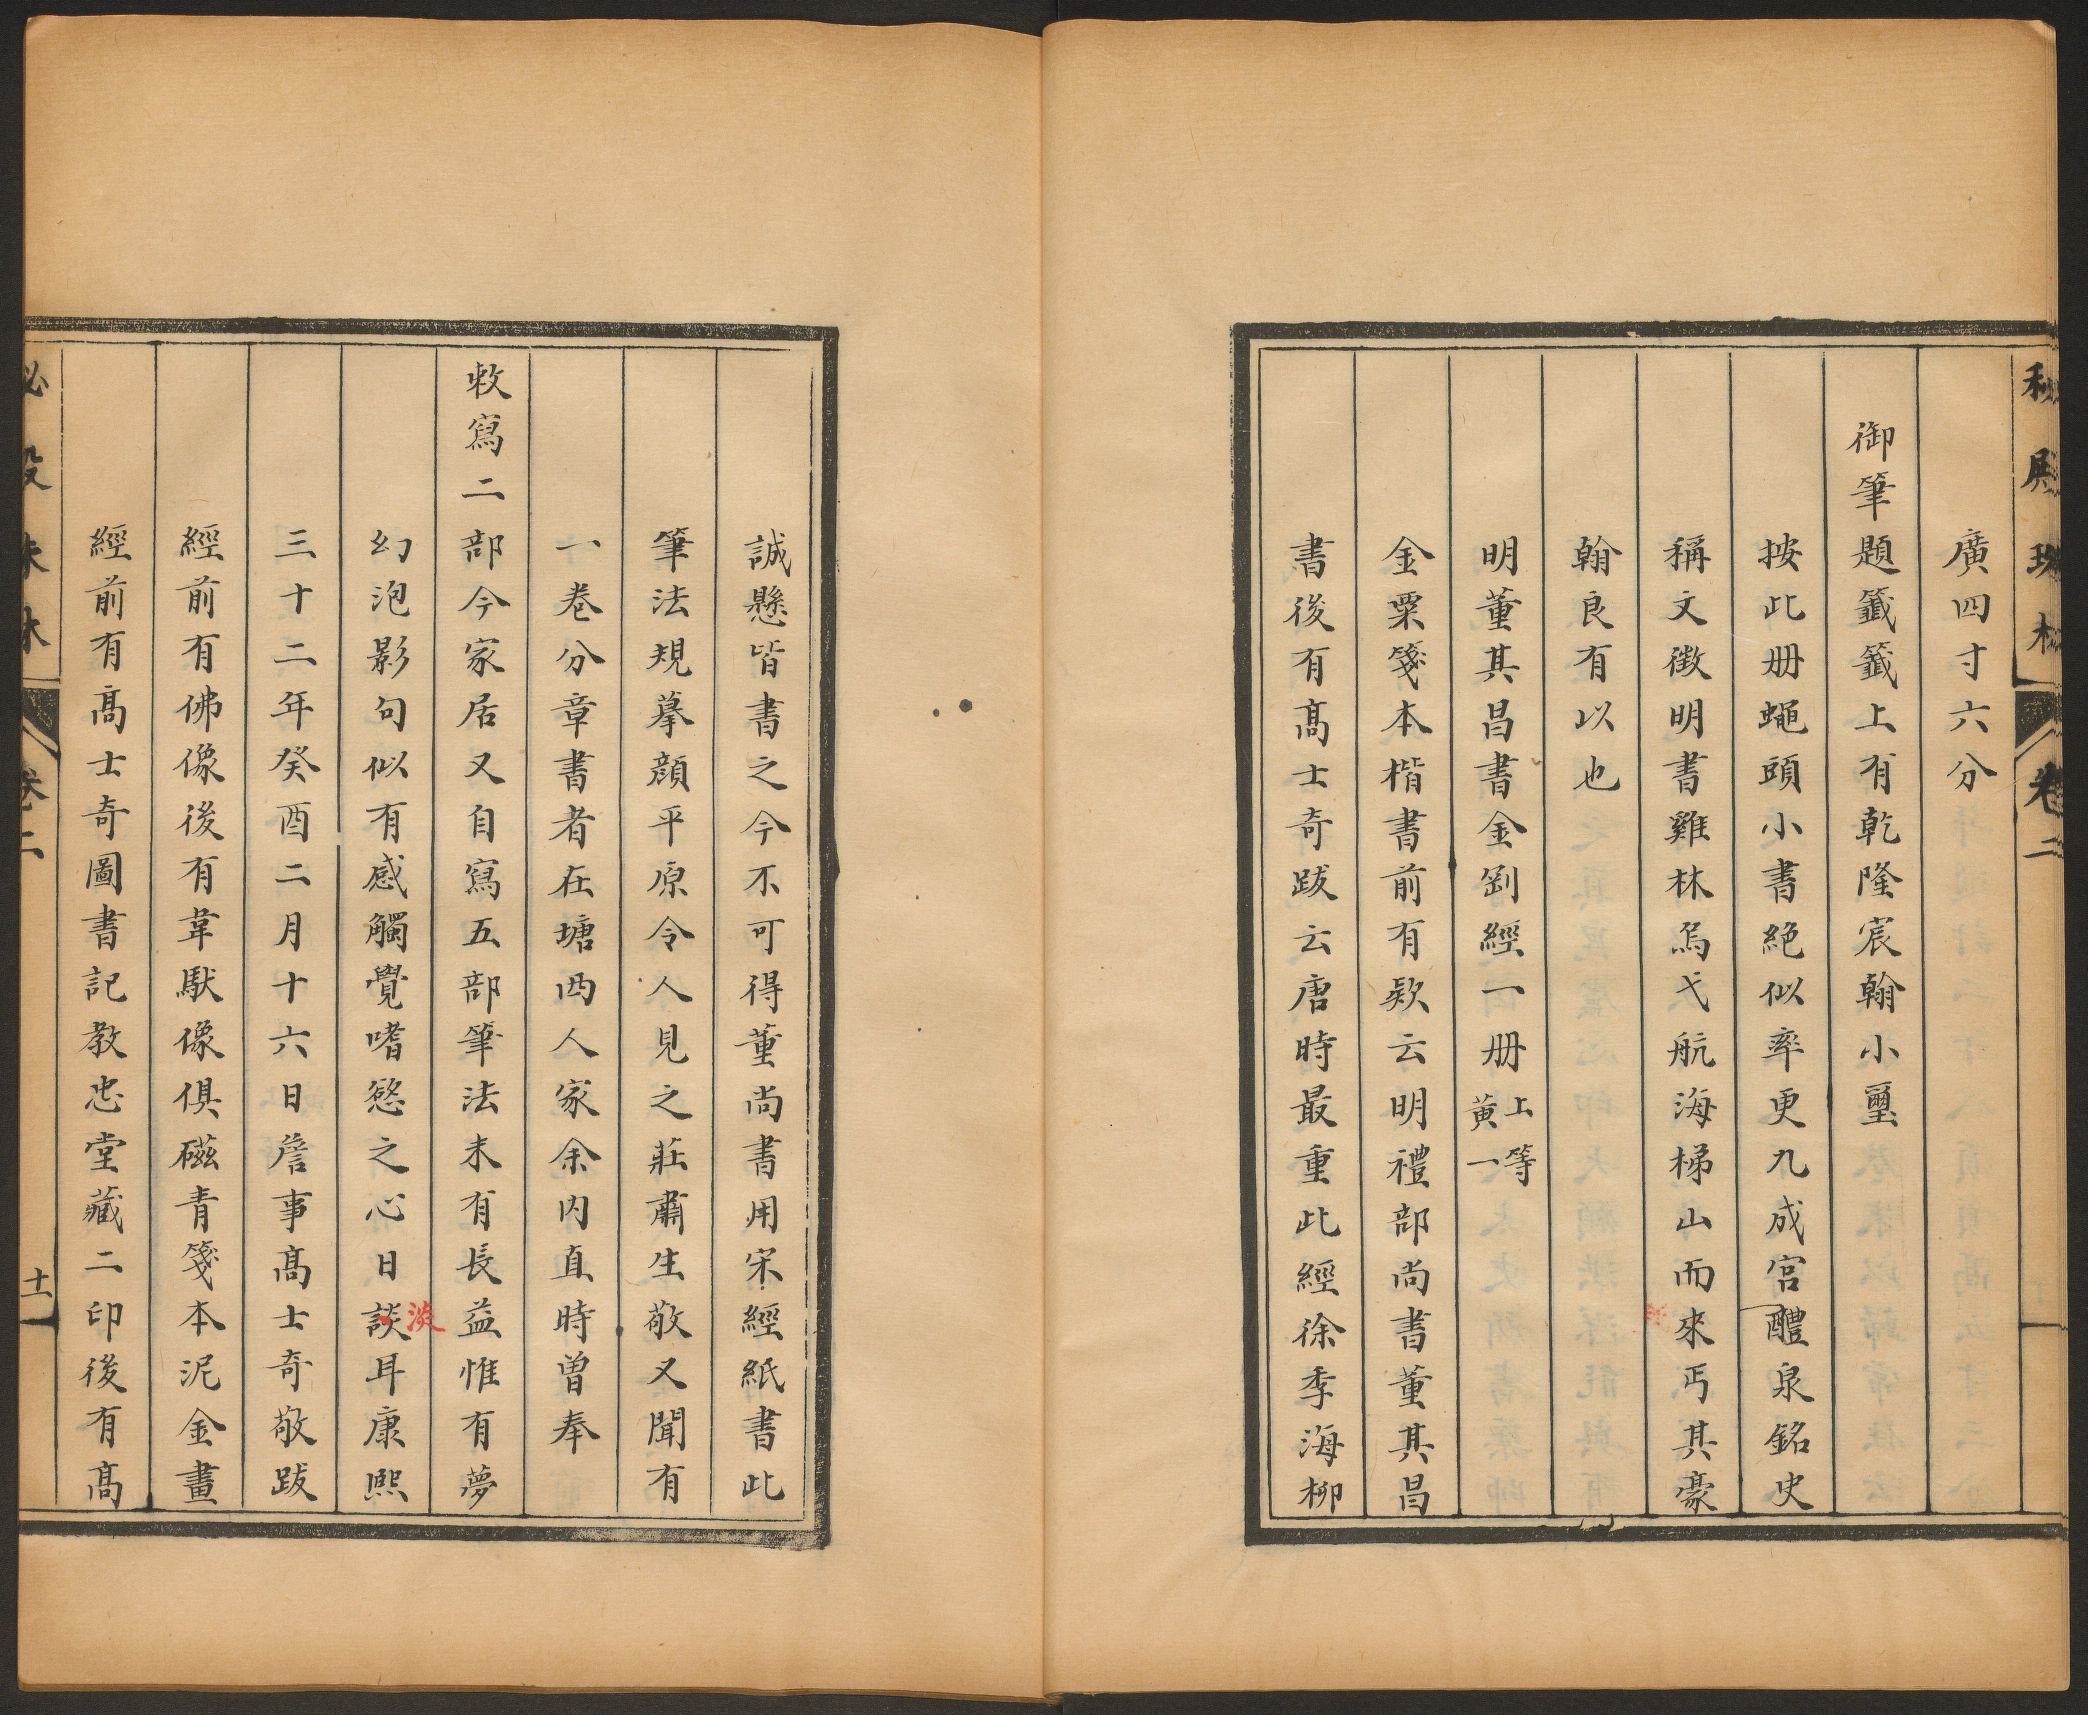 秘殿珠林
卷二
廣四寸六分
御筆題籤籤上有乾隆宸翰小璽
按此册蠅頭小書絶似率更九成宫醴泉銘史
稱文徴明書雞林烏弋航海梯山而來丐其豪
翰良有以也
明董其昌書金剛經一册上等
黄一
金粟箋本楷書前有欵云明禮部尚書董其昌
書後有髙士奇跋云唐時最重此經徐季海柳
誠懸皆書之今不可得董尚書用宋經紙書此
筆法規摹顔平原令人見之莊肅生敬又聞有
一卷分章書者在塘西人家余内直時曽奉
敕寫二部今家居又自寫五部筆法未有長益惟有夢
幻泡影句似有感觸覺嗜慾之心日談耳康熈
淡
三十二年癸酉二月十六日詹事髙士奇敬跋
經前有佛像後有韋馱像俱磁青箋本泥金畫
經前有髙士奇圖書記教忠堂藏二印後有髙
秘殿珠林
卷二
十一